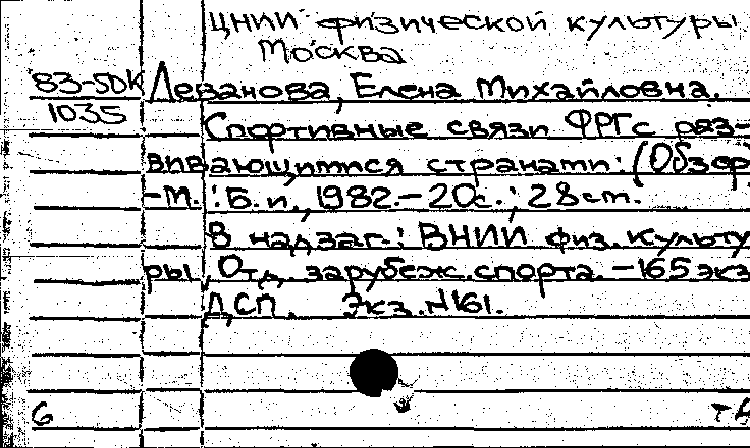 ЦНИИ физической культуры
Москва
83-5DK Леванова, Елена Михайловна.
1035
Спортивные связи ФРГ с раз-
вивающимися странами: (Обзор
-М.: Б.и., 1982.-20с.; 28см.
В надзаг.: ВНИИ физ. культу
ры, Отд. зарубеж. спорта. -165экз
ДСП. Экз.№161.
6